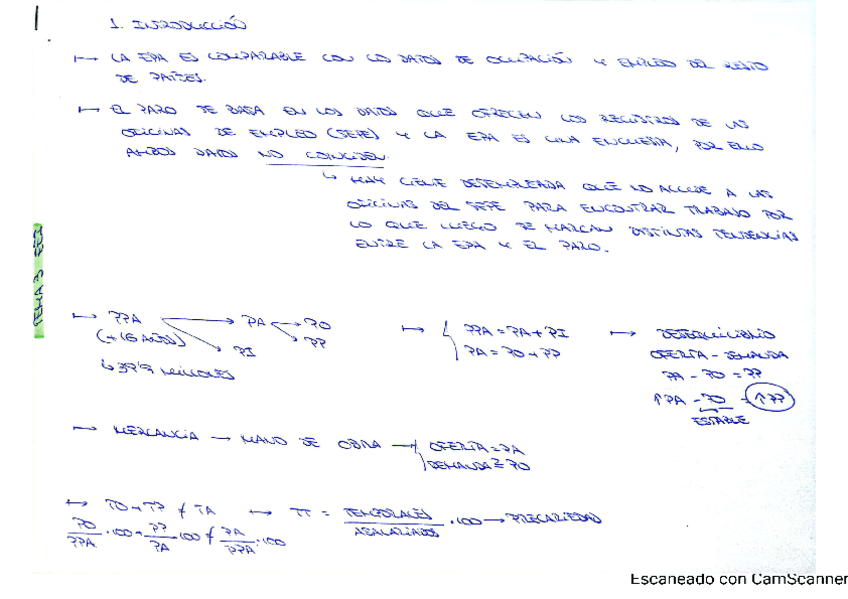 1. INTRODUCCIÓN
↦ LA EPA ES COMPARABLE CON LOS DATOS DE OCUPACIÓN Y EMPLEO DEL RESTO
DE PAÍSES.
↦ EL PARO SE BASA EN LOS DATOS QUE OFRECEN LOS REGISTROS DE LAS
OFICINAS DE EMPLEO (SEPE) Y LA EPA ES UNA ENCUESTA, POR ELLO
AMBOS DATOS NO COINCIDEN.
↳ HAY GENTE DESEMPLEADA QUE NO ACCEDE A LAS
OFICINAS DEL SEPE PARA ENCONTRAR TRABAJO POR
LO QUE LUEGO SE MARCAN DISTINTAS TENDENCIAS
ENTRE LA EPA Y EL PARO.
TEMA 3
↦ PPA → PA → PO
(+16 AÑOS) PP
PI
↳ 39'9 MILLONES
↦ { PPA = PA + PI
PA = PO + PP
↦ DESEQUILIBRIO
OFERTA - DEMANDA
PA - PO = PP
↑PA - PO = ↑PP
ESTABLE
↦ MERCANCIA → MANO DE OBRA → { OFERTA = PA
DEMANDA = PO
↦ TO + TP ≠ TA
PO/PPA · 100 + PP/PA · 100 ≠ PA/PPA · 100
↦ TT = TEMPORALES/ASALARIADOS · 100 → PRECARIEDAD
Escaneado con CamScanner